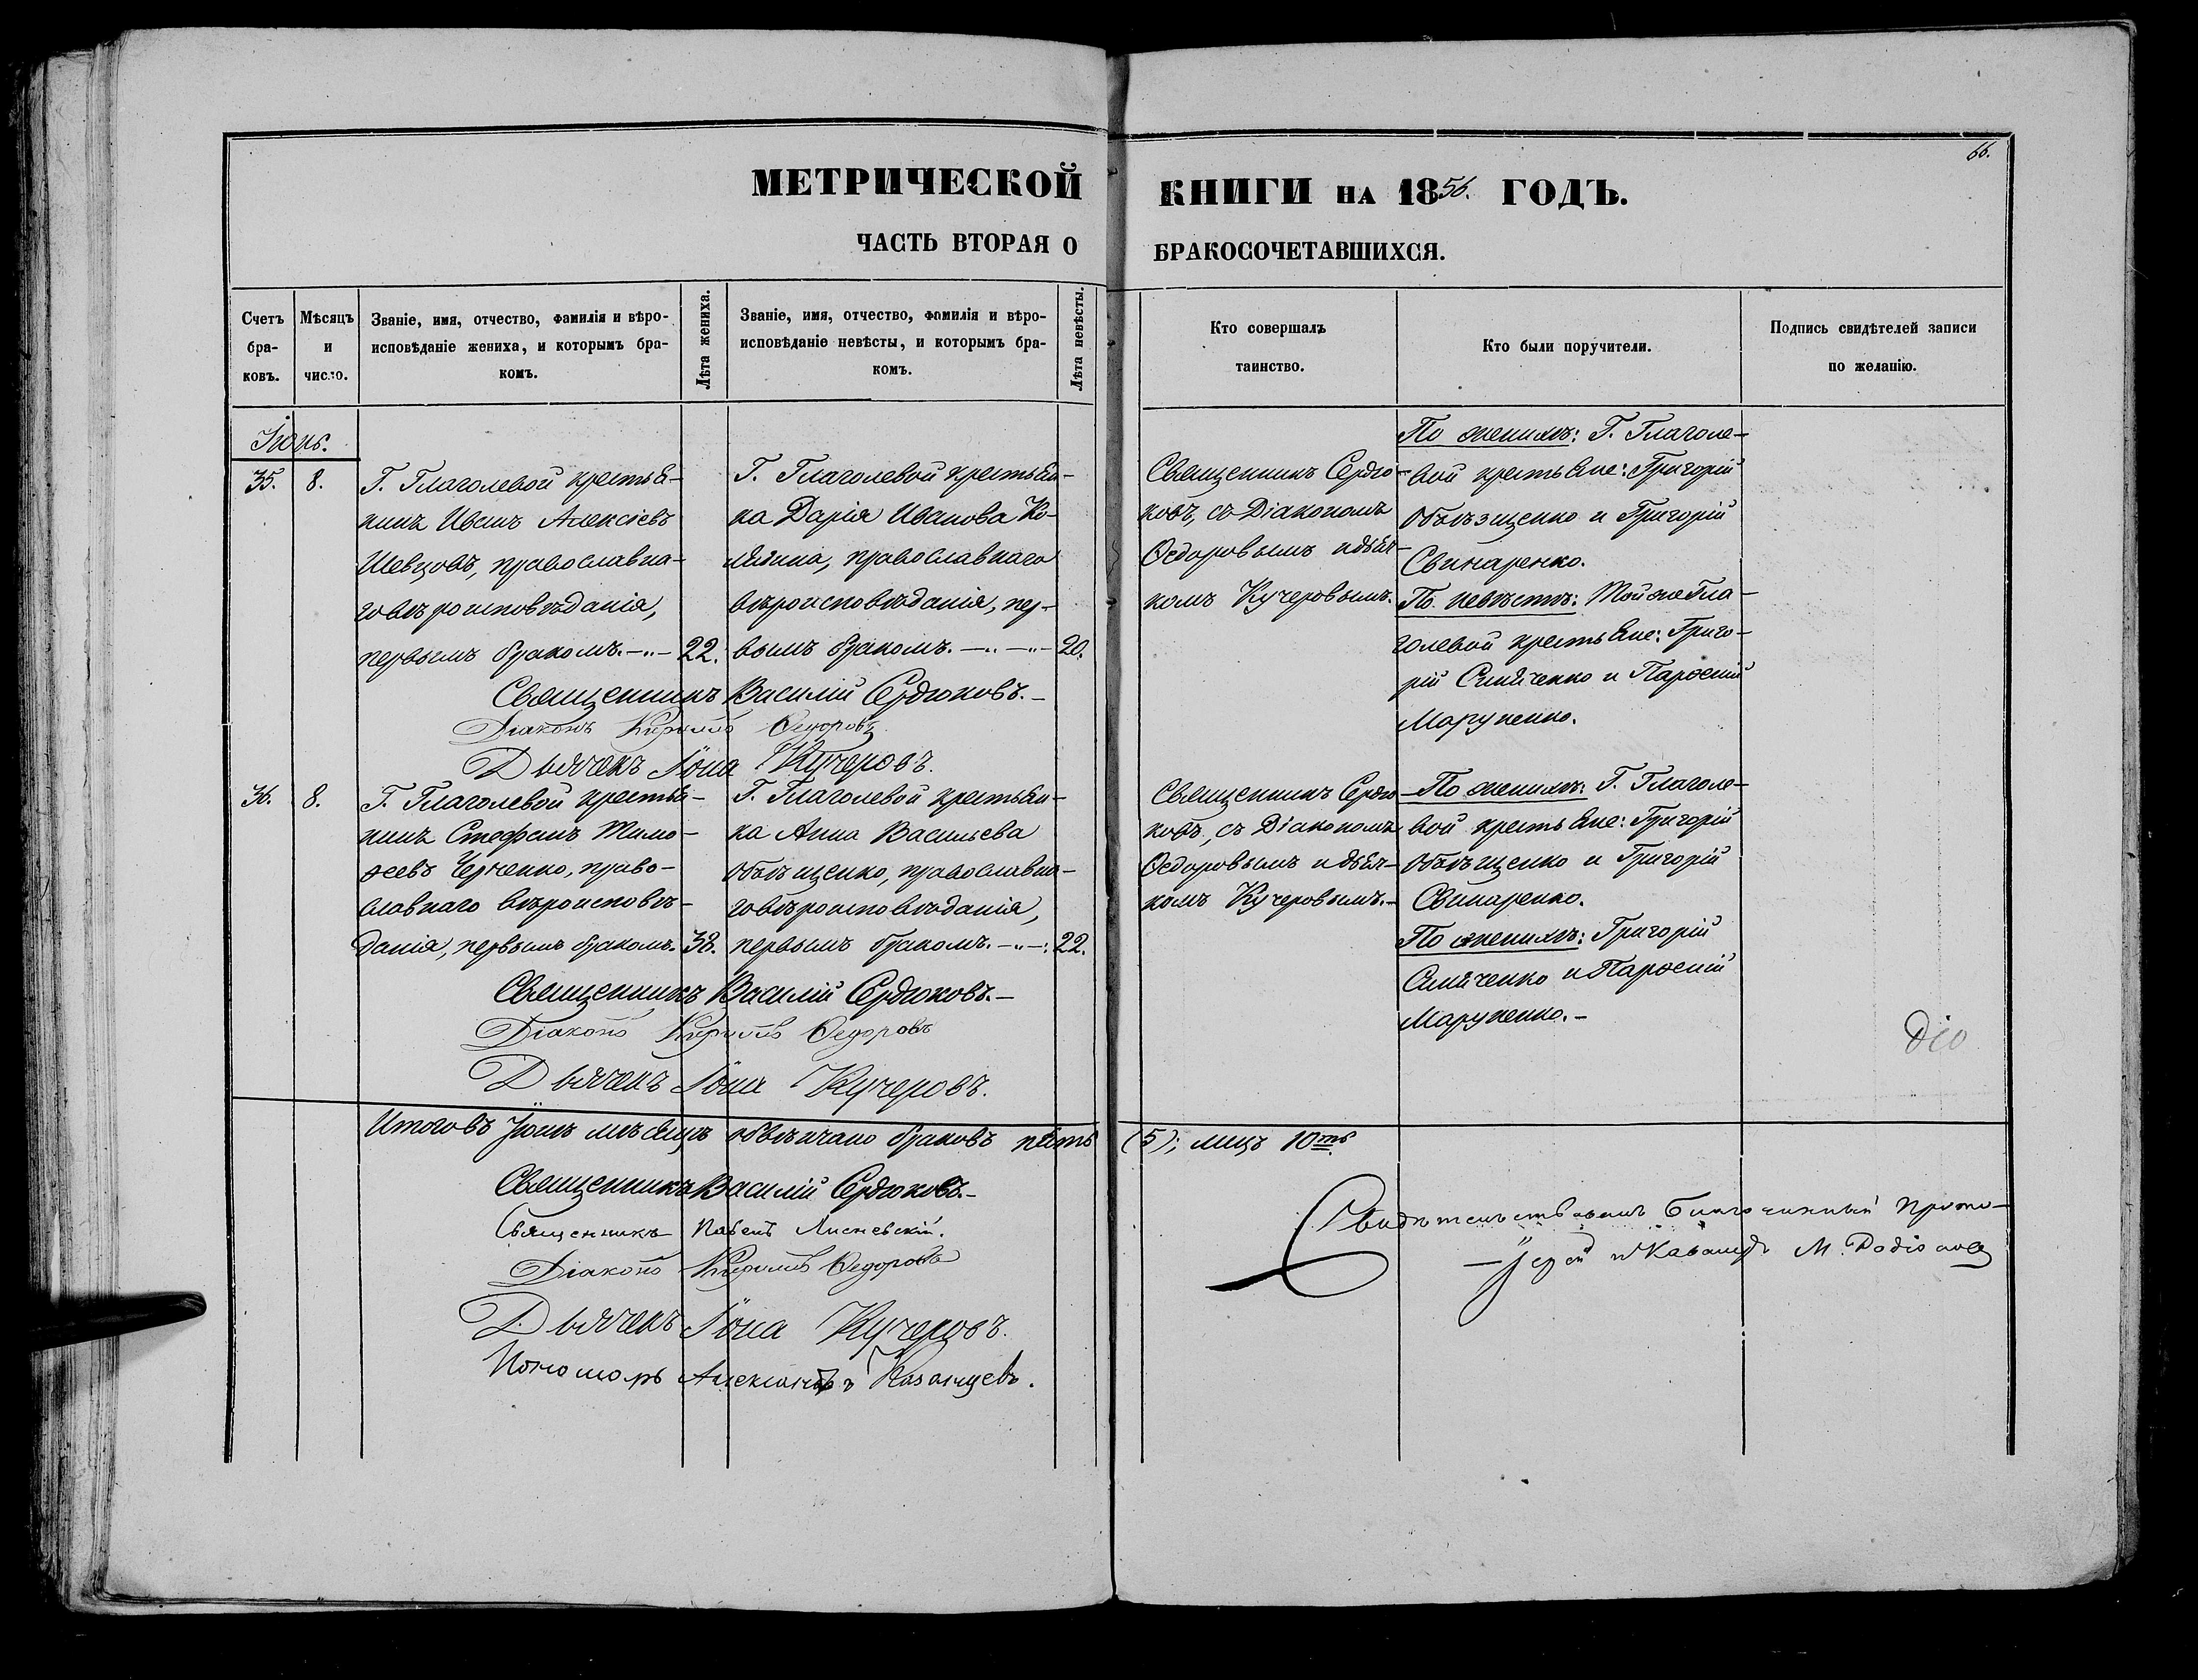 66.
МЕТРИЧЕСКОЙ КНИГИ НА 1856. ГОДЪ.
ЧАСТЬ ВТОРАЯ О БРАКОСОЧЕТАВШИХСЯ.
Счетъ
бра-
ковъ.
Мѣсяцъ
и
число.
Званіе, имя, отчество, фамилія и вѣро-
исповѣданіе жениха, и которымъ бра-
комъ.
Лѣта жениха.
Званіе, имя, отчество, фамилія и вѣро-
исповѣданіе невѣсты, и которымъ бра-
комъ.
Лѣта невѣсты.
Кто совершалъ
таинство.
Кто были поручители.
Подпись свидѣтелей записи
по желанію.
Іюнь.
35.
8.
Г. Глаголевой крестья-
нинъ Иванъ Алексіевъ
Шевцовъ, православна-
го вѣроисповѣданія,
первымъ бракомъ.-"- 22.
Г. Глаголевой крестьян-
ка Дарія Иванова Ко-
православнаго
вѣроисповѣданія, пер-
вымъ бракомъ.-"-"- 20.
Священникъ Сердю-
ковъ, съ Діакономъ
Ѳедоровымъ и дьяч-
комъ Кучеровымъ.
По женихѣ: Г. Глаголе-
вой крестьяне: Григорій
Объѣзщенко и Григорій
Свинаренко.
По невѣстѣ: Той же Гла-
голевой крестьяне: Григо-
рій Симяченко и Парѳеній
Марупенко.
Священникъ Василій Сердюковъ.-
Діаконъ Кириллъ Ѳедоровъ
Дьячекъ Іона Кучеровъ.
36.
8.
Г. Глаголевой крестья-
нинъ Стефанъ Тимо-
ѳеевъ Черченко, право-
славнаго вѣроисповѣ-
данія, первымъ бракомъ. 38.
Г. Глаголевой крестьян-
ка Анна Васильева
Объѣщенко, православна-
го вѣроисповѣданія,
первымъ бракомъ.-"-: 22.
Священникъ Сердю-
ковъ, съ Діакономъ
Ѳедоровымъ и дьяч-
комъ Кучеровымъ.-
По женихѣ: Г. Глаголе-
вой крестьяне: Григорій
Объѣщенко и Григорій
Свинаренко.
По женихѣ: Григорій
Симяченко и Парѳеній
Марупенко.-
Священникъ Василій Сердюковъ.-
Діаконъ Кириллъ Ѳедоровъ
Дьячекъ Іона Кучеровъ.
Итого въ Іюнѣ мѣсяцѣ обвѣнчано браковъ пять (5); лицъ 10ть
Священникъ Василій Сердюковъ.-
Священникъ Павелъ Лисневскій.
Діаконъ Кириллъ Ѳедоровъ
Дьячекъ Іона Кучеровъ.
Пономарь Александръ Казанцевъ.
Свидѣтельствовалъ Благочинный Прото-
-іерей и Кавалеръ М. Родіоновъ